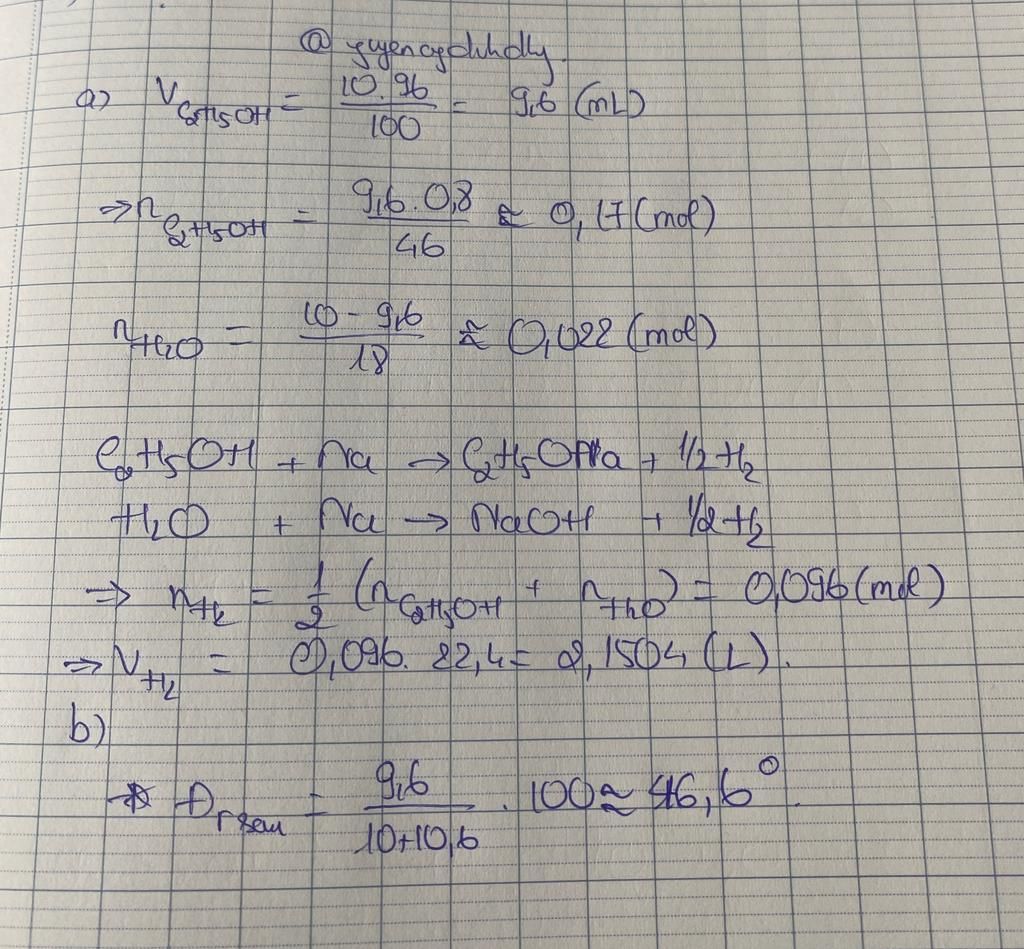 @
a) V C2H5OH = 10.96 / 100 = 9,6 (mL)
=> n C2H5OH = 9,6 . 0,8 / 46 ≈ 0,17 (mol)
n H2O = 10 - 9,6 / 18 ≈ 0,022 (mol)
C2H5OH + Na → C2H5ONa + 1/2 H2
H2O + Na → NaOH + 1/2 H2
=> n H2 = 1/2 (n C2H5OH + n H2O) = 0,096 (mol)
=> V H2 = 0,096 . 22,4 = 2,1504 (L).
b)
* Đr sau = 9,6 / 10+10,6 . 100 ≈ 46,6°.